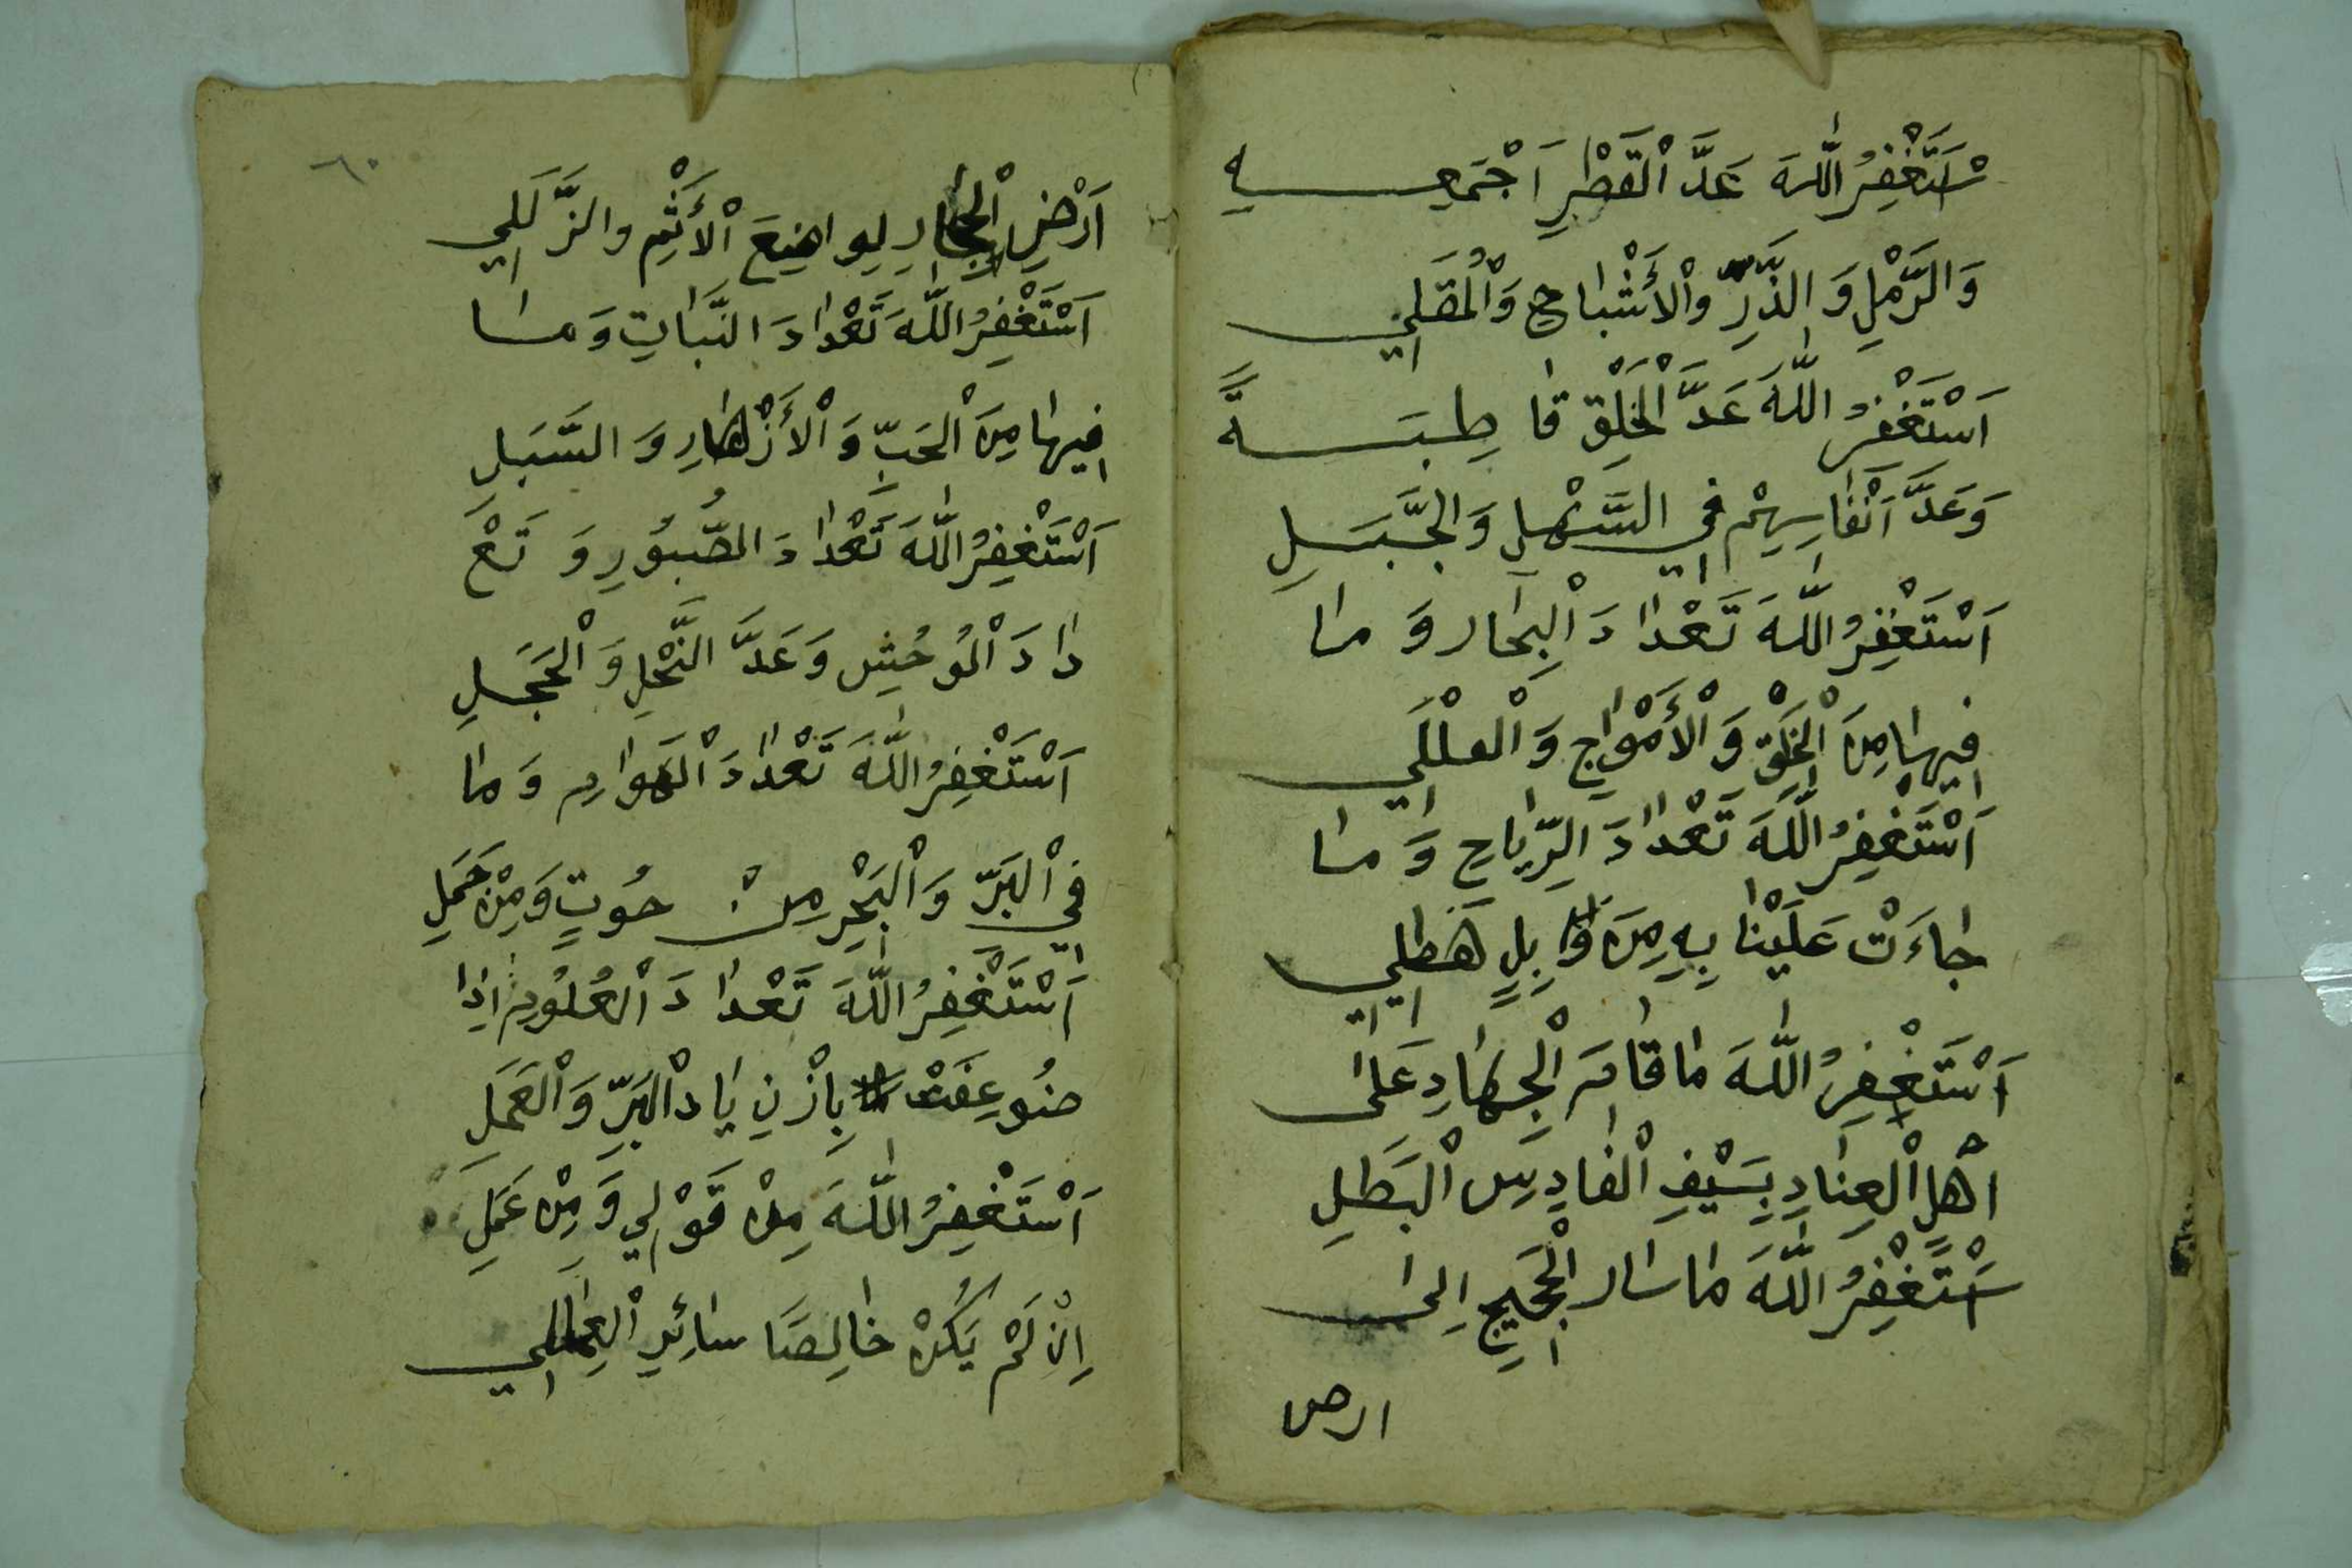 سْتَغْفِرُ اللّٰهَ عَدَّ الْقَطْرِ اَجْمَعِهِ
وَالرَّمْلِ وَالذَّرِّ وْالْأَشْبَاحِ وَالْمُقَلِي
اَسْتَغْفِرُ اللّٰهَ عَدَّ الْخَلْقِ قَاطِبَةً
وَعَدَّ اَنْفَاسِهِمْ فِي السَّهْلِ وَالْجَبَلِ
اَسْتَغْفِرُ اللّٰهَ تَعْدَادَ الْبِحَار وَمَا
فِيهَا مِنَ الْخَلْقِ وَالْأَمْوَاجِ وَالْعلْلَلِي
اَسْتَغْفِرُ اللّٰهَ تَعْدَادَ الرِّيَاحِ وَمَا
جَاءَتْ عَلَيْنَا بِهِ مِنَ وَابِلٍ هَطِلِي
اَسْتَغْفِرُ اللّٰهَ مَا قَامَ الْجِهَادِ عَلَى
اهْلِ الْعِنَادِ بِسَيْفِ الْفَارِسِ الْبَطَلِ
سْتَغْفِرُ اللّٰهَ مَا سَار الْحَجِيجِ اِلَى
ارض
٦٠
اَرْضِ الْحِجَازِ لِوَاضِعَ الْأَثْمِ والزَّلَلِي
اَسْتَغْفِرُ اللّٰهَ تَعْدَادَ النَّبَاتِ وَمَا
فِيهَا مِنَ الْحَبِّ وَالْأَزْهَارِ وَالسَّبَلِ
اَسْتَغْفِرُ اللّٰهَ تَعْدَادَ الطُّيُورِ وَتَعْ
دَادَ الْوُحُشِ وَعَدَّ النَّحْلِ وَالْحَجَلِ
اَسْتَغْفِرُ اللّٰهَ تَعْدَادَ الْهَوَامِ وَمَا
فِي الْبَرِّ وَالْبَحْرِ مِنْ حُوتٍ وَمِنْ حَمَلِ
اَسْتَغْفِرُ اللّٰهَ تَعْدَادَ الْعُلُومِ اِذَا
ضُوعِفَتْ بِازْدِيَادْ الْبَرِّ وَالْعَمَلِ
اَسْتَغْفِرُ اللّٰهَ مِنْ قَوْلِي وَمِنْ عَمَلِ
اِنْ لَمْ يَكُنْ خَالِصًا سَائِرِ الْعِمَلِي